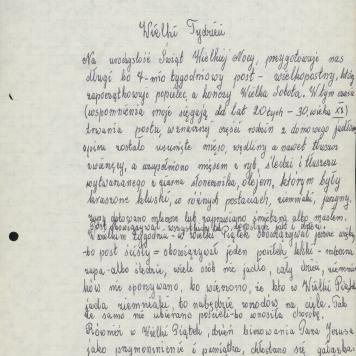 Wielki Tydzień
Na uroczystość Świąt Wielkiej Nocy, przygotowuje nas
długi bo 7-mio tygodniowy post - wielkopostny, który
zapoczątkowuje popielec, a kończy Wielka Sobota. W tym czasie
(wspomnienia moje sięgają do lat 20-tych - 30, wieku XX)
trwania postu, w znacznej części rodzin z domowego jadło-
spisu zostało usunięte mięso, wędliny a nawet tłuszcz
zwierzęcy, a uzupełniono mięsem z ryb, śledzi i tłuszczu
wytwarzanego z ziarna słonecznika, olejem, którym były
kraszone kluski, w różnych postaciach, ziemniaki, jarzyny,
zupy gotowano mleczne lub zaprawiano śmietaną albo masłem.
Post obowiązywał wszystkich dorosłych jak i dzieci.
W Wielkim Tygodniu - w Wielki Piątek obowiązywał
bo post ścisły - obowiązywał jeden posiłek
zupa - albo śledzie, wiele osób nie jadło, cały dzień, ziemnia-
ków nie spożywano, bo wierzono, że kto w Wielki Piątek
jada ziemniaki, to nabędzie wrzodów na ciele. Tak
że samo nie ubierano pościeli - bo wnosiła chorobę.
Również w Wielki Piątek, dzień biczowania Pana Jezusa
jako przypomnienie i pamiątka, chłostano się gałązką